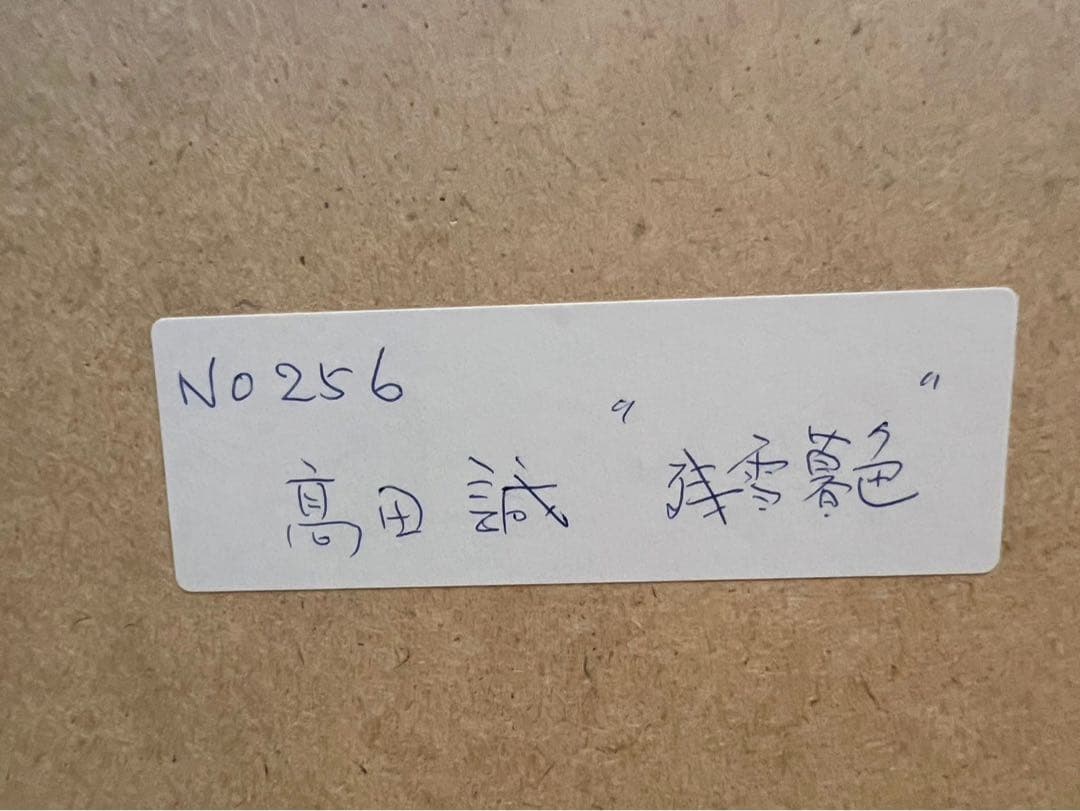 No 256
髙田 誠 "残雪暮色"